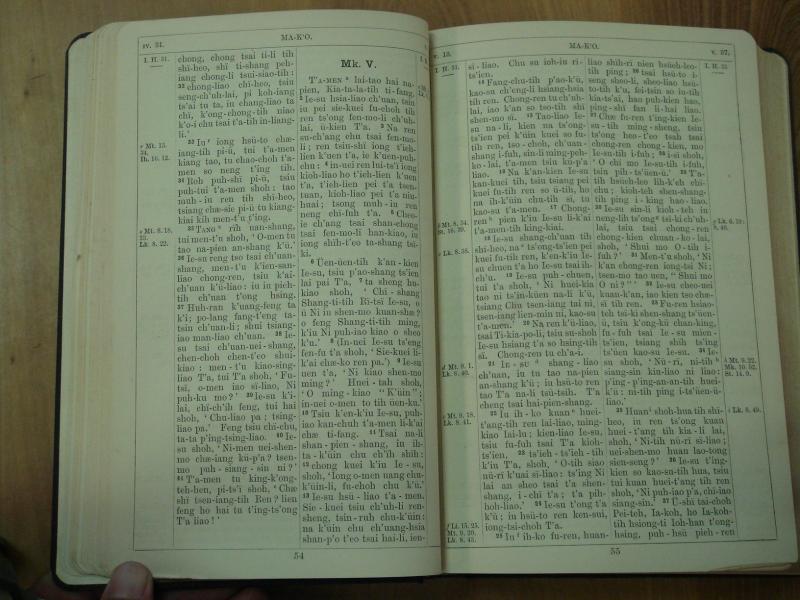 iv. 31.
MA-K'O.
I. H. 31.
chong, chong tsai ti-li tih
shi-heo, shï ti-shang peh-
iang chong-li tsui-siao-tih:
32 chong-liao chï-heo, tsiu
seng-ch'uh-lai, pi koh-iang
ts'ai tu ta, iu chang-liao ta
chï, k'ong-chong-tih niao
k'o-i chu tsai t'a-tih in-liang-
li.'
Mt. 13.
34.
33 Iu iong hsü-to chæ-
iang-tih pi-ü, tui t'a-men
kiang tao, tu chao-choh t'a-
men so neng t'ing tih.
34 Roh puh-shï pi-ü, tsiu
puh-tui t'a-men shoh: tao
mub-iu ren tih shï-heo,
tsiang chæ-sie pi-ü tu kiang-
kiai kih men-t'u t'ing.
Mt. 8. 18.
23.
Lk. 8. 22.
35 TANG rïh uan-shang,
tui men-t'u shoh, 'O-men tu
tao na-pien an-shang k'ü.'
36 Ie-su reng tso tsai ch'uan-
shang, men-t'u k'ien-san-
liao chong-ren, tsiu k'ai-
ch'uan k'ü-liao: iu iu pich-
tih ch'uan t'ong hsing.
37 Huh-ran k'uang-feng ta
k'i; po-lang fang-t'eng ta-
tsin ch'uan-li; shui tsiang-
iao man-liao ch'uan. 38 Ie-
su tsai ch'uan-uei-shang,
chen-choh chen-t'eo shui-
kiao: men-t'u kiao-sing-
liao T'a, tui T'a shoh, 'Fu-
tsï, o-men iao sï-liao, Ni
puh-ku mo?' 39 Ie-su k'i-
lai, chï-ch'ih feng, tui hai
shoh, 'Chu-liao pa; tsing-
liao pa.' Feng tsiu chï-chu,
ta-ta p'ing-tsing-liao. 40 Ie-
su shoh, 'Ni-men uei-shen-
mo chæ-iang kü-p'a? tsen-
mo puh-siang-sin ni?'
41 T'a-men tu king-k'ong-
teh-hen, pi-ts'ï shoh, 'Chæ
shï tsen-iang-tih Ren? lien
feng ho hai tu t'ing-ts'ong
T'a liao!'
Mk. V.
T'A-MEN lai-tao hai na-
pien, Kia-ta-la-tih ti-fang.
2 Ie-su hsia-liao ch'uan, tsiu
iu pei sie-kuei fu-choh tih
ren ts'ong fen-mo-li ch'uh-
lai, ü-kien T'a. 3 Na ren
su-ch'ang chu tsai fen-mo-
li; ren tsiu-shï iong t'ieh-
lien k'uen t'a, ie k'uen-puh-
chu: 4 in-uei ren lui-ts'ï iong
kioh-liao ho t'ieh-lien k'uen
t'a, t'ieh-lien pei t'a tsen-
tuan, kioh-liao pei t'a niu-
huai; tsong muh-iu ren
neng chï-fuh t'a. 5 Cheo-
ie ch'ang tsai shan-chong
tsai fen-mo-li han-kiao, iu
iong shïh-t'eo ta-shang tsï-
ki.
6 Üen-üen-tih k'an-kien
Ie-su, tsiu p'ao-shang ts'ien
lai pai T'a, 7 ta sheng hu-
kiao shoh, 'Chi-shang
Shang-ti-tih Rï-tsï Ie-su, o
ü Ni iu shen-mo kuan-shæ?
o feng Shang-ti-tih ming,
k'iu Ni puh-iao kiao o sheo
k'u.' 8 (In-uei Ie-su ts'eng
fen-fu t'a shoh, 'Sie-kuei li-
k'ai chæ-ko ren pa.') 9 Ie-su
uen t'a, 'Ni kiao shen-mo
ming?' Huei-tah shoh,
'O ming-kiao "K'üin";
in-uei o-men to tih üen-ku.'
10 Tsiu k'en-k'iu Ie-su, puh-
iao kan-chuh t'a-men li-k'ai
chæ ti-fang. 11 Tsai na-li
shan-pien-shang, iu ih-
ta-k'üin chu ch'ïh shïh:
12 chong kuei k'iu Ie-su,
shoh, 'Iong o-men uang chu-
k'üin-li, fu-choh chu k'ü.'
13 Ie-su hsü-liao t'a-men.
Sie-kuei tsiu ch'uh-li ren-
sheng, tsin-ruh chu-k'üin:
na k'üin chu ch'uang-hsia
shan-p'o t'eo tsai hai-li, ien-
54
v. 13.
MA-K'O.
v. 37.
I. H. 31.
si-liao. Chu su ioh-iu ri-
ts'ien.
14 Fang-chu-tih p'ao-k'ü,
kao-su ch'eng-li hsiang-hsia
tih ren. Chong-ren tu ch'uh-
lai, iao k'an so tso-tih shï
shen-mo sï. 15 Tao-liao Ie-
su na-li, kien na ts'ong-
ts'ien pei k'üin kuei so fu-
tih ren, tso-choh, ch'uan-
shang i-fuh, sin-li ming-peh-
ko-lai, t'a-men tsiu ku-p'a
liao. 16 Na k'an-kien Ie-su
kan-kuei tih, tsiu tsiang pei
kuei fu-tih ren so ü-tih, ho
na ih-k'üin chu-tih sï, tu
kao-su t'a-men. 17 Chong-
ren pien k'iu Ie-su li-k'ai
t'a-men-tih king-kiai.
Mt. 8. 34.
Lk. 8. 38.
18 Ie-su shang-ch'uan tih
shï-heo, na ts'ong-ts'ien pei
kuei fu-tih ren, k'en-k'iu Ie-
su chuen t'a ho Ie-su tsai ih-
ch'u. 19 Ie-su puh-chuen,
tui t'a shoh, 'Ni huei-kia
tao ni ts'in-küen na-li k'ü,
tsiang Chu tsen-iang lien-
tsien-iang lien-min ni, kao-su
t'a-men.' 20 Na ren k'ü-liao,
tsai Ti-kia-po-li, tsiu su-shoh
Ie-su hsiang t'a so hsing-tih
sï. Chong-ren tu ch'a-i.
Mt. 9. 1.
Lk. 8. 40.
21 IE-SU shang-liao
ch'uan, iu tu tao na-pien
an-shang k'ü; iu hsü-to ren
tao T'a na-li tsü-tsih. T'a
cheng tsai hai-pien-shang.
Mt. 9. 18.
Lk. 8. 41.
22 Iu ih-ko kuan huei-
t'ang-tih ren lai-liao, ming-
kiao Iai-lu; kien-liao Ie-su,
tsiu fu-fuh tsai T'a kioh-
ts'ien, 23 ts'ieh-ts'ieh-tih
k'iu T'a, shoh, 'O-tih siao
nü-rï k'uai sï-liao; ts'ing Ni
lai an sheo tsai t'a shen-
shang, i-chï t'a; t'a pih-
hoh-liao.' 24 Ie-su t'ong t'a
k'ü; iu hsü-to ren ken-sui,
iong-tsi-choh T'a.
Mt. 9. 20.
Lk. 8. 43.
25 Iu ih-ko fu-ren, huan-
liao shïh-ri nien hsüeh-leo-
tih ping; 26 tsai hsü-to i-
seng sheo-li, sheo-liao hsü-
to-tih k'u, fei-tsin so iu-tih
kia-ts'ai, hao puh-kien hao,
ping-shï fan li-hai liao.
27 Chæ fu-ren t'ing-kien Ie-
su-tih ming-sheng, tsiu
ts'ong heo-t'eo tsah tsai
chong-ren chong-kien, mo
Ie-su-tih i-fuh: 28 i-si shoh,
'O chï mo Ie-su-tih i-fuh,
tsiu pih-ts'üen-ü.' 29 T'a-
tih hsüeh-leo lih-k'eh chï-
chu; kioh-teh shen-shang-
tih ping i-king hao-liao.
30 Ie-su sin-li kioh-teh iu
neng-lih ts'ong tsï-ki ch'uh-
lai, tsiu tsai chong-ren
chong-kien chuan-ko-lai,
shoh, 'Shui mo O-tih i-
fuh?' 31 Men-t'u shoh, 'Ni
k'an chong-ren iong-tsi Ni;
tsen-mo uen, "Shui mo
O ni?"' 32 Ie-su cheo-uei
kuan-k'an, iao kien tso chæ-
sï tih ren. 33 Fu-ren hsiao-
teh tsï-ki shen-shang ts'üen-
ü, tsiu k'ong-kü chan-king,
lai fu-fuh tsai Ie-su mien-
ts'ien, tsiang shïh ts'ing
ts'üen kao-su Ie-su. 34 Ie-
su shoh, 'Nü-rï, ni-tih
siang-sin kiu-liao ni liao;
p'ing-p'ing-an-an-tih huei-
k'ü: ni-tih ping i-ts'üen-ü-
liao.'
Mt. 9. 22.
Mk. 10. 52.
Lk. 8. 49.
35 Huan shoh-hua-tih shï-
heo, iu ren ts'ong kuan
huei-t'ang tih kia-li lai,
shoh, 'Ni-tih nü-rï sï-liao;
uei-shen-mo huan lao-tong
sien-seng?' 36 Ie-su t'ing-
kien so kao-su-tih hua, tsiu
tui kuan huei-t'ang tih ren
shoh, 'Ni puh-iao p'a, chï-iao
siang-sin.' 37 Ü-shï tsai-choh
Pei-teh, Ia-koh, ho Ia-koh-
tih hsiong-ti Ioh-han t'ong-
hsing, puh-hsü pieh-ren
55